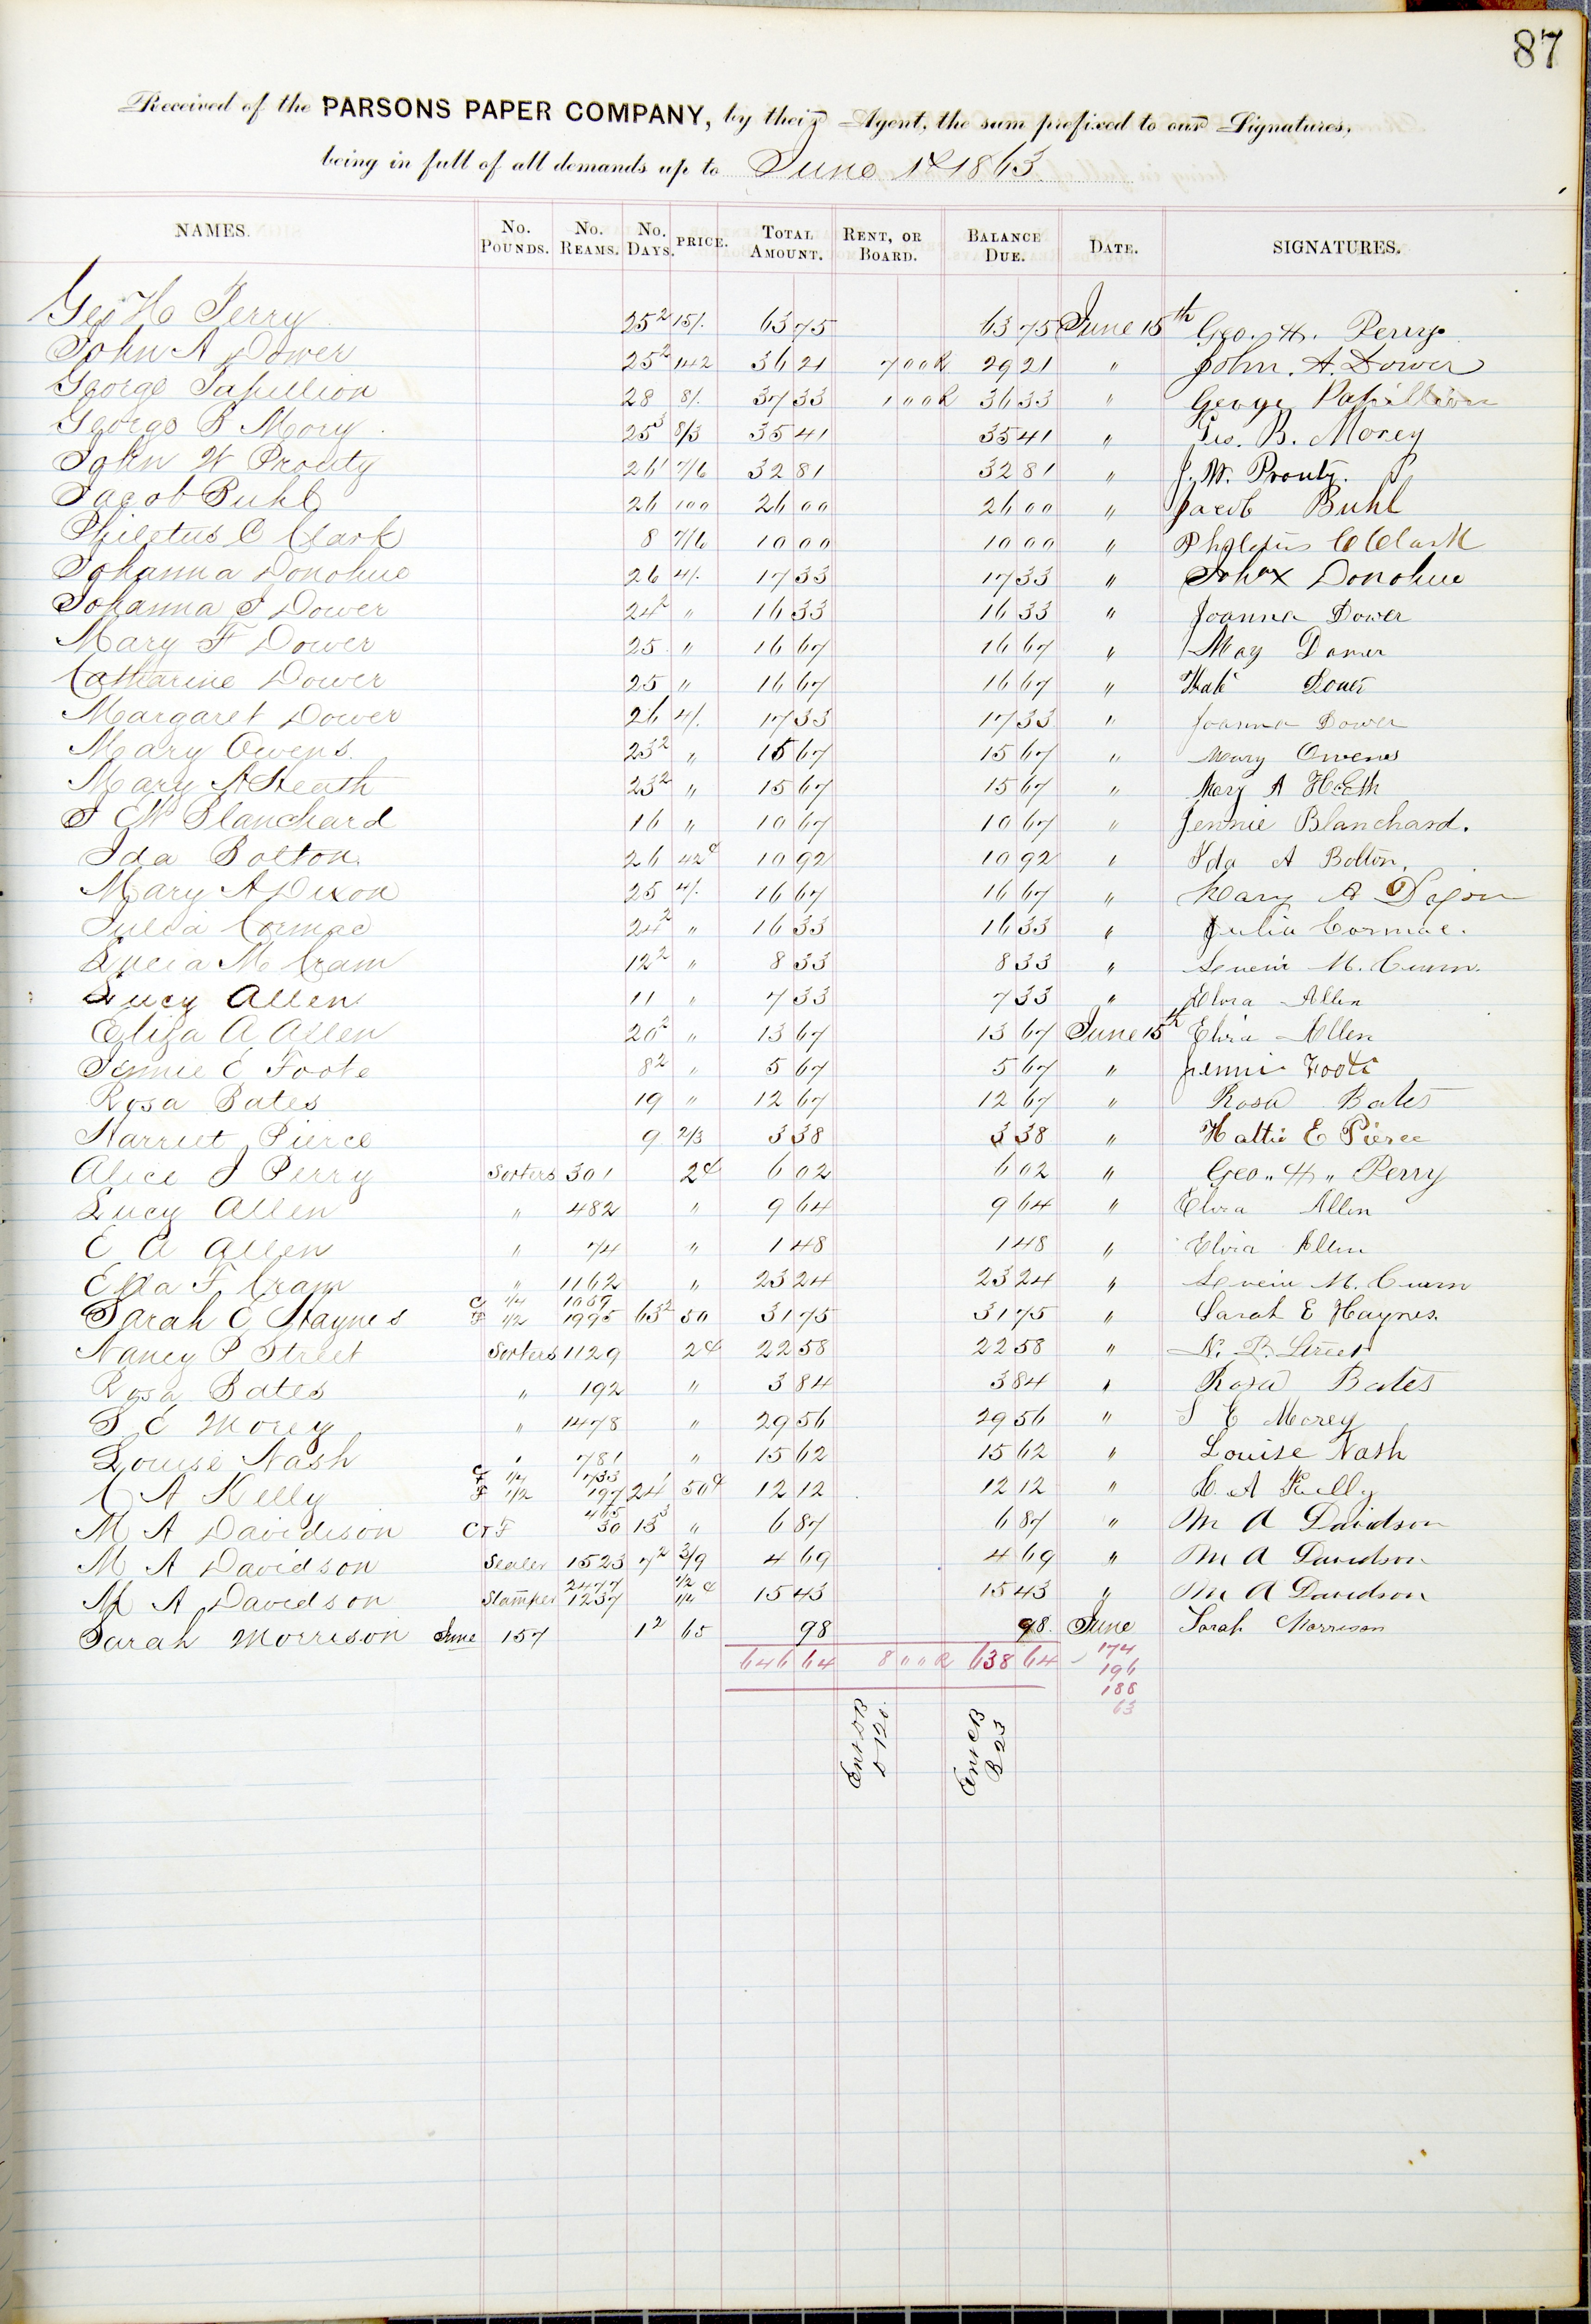 87
Received of the PARSONS PAPER COMPANY, by their Agent, the sum prefixed to our Signatures,
being in full of all demands up to June 1st 1863
NAMES. No. POUNDS. No. REAMS. No. DAYS. PRICE. TOTAL AMOUNT. RENT, OR BOARD. BALANCE DUE. DATE. SIGNATURES.
Geo H Perry 25 2 15/. 63 75 63 75 June 15th Geo. H. Perry.
John A Dower 25 2 142 36 21 7 00 R 29 21 " John. A. Dower
George Papillion 28 8/. 37 33 1 00 R 36 33 " George Papillion
George B Mory. 25 3 8/3 35 41 35 41 " Geo. B. Morey
John W Prouty 26 1 7/6 32 81 32 81 " J. W. Prouty.
Jacob Buhl 26 100 26 00 26 00 " Jacob Buhl
Philetus C Clark 8 7/6 10 00 10 00 " Philetus C Clark
Johanna Donohue 26 4/. 17 33 17 33 " Joh x Donohue
Johanna J Dower 24 2 " 16 33 16 33 " Joanna Dower
Mary F Dower 25 " 16 67 16 67 " May Dower
Catharine Dower 25 " 16 67 16 67 " Kate Dower
Margaret Dower 26 4/. 17 33 17 33 " Joanna Dower
Mary Owens. 23 2 " 15 67 15 67 " Mary Owens
Mary A Heath 23 2 " 15 67 15 67 " Mary A Heath
J E W Blanchard 16 " 10 67 10 67 " Jennie Blanchard.
Ida Bolton. 26 42c 10 92 10 92 " Ida A Bolton.
Mary A Dixon 25 4/. 16 67 16 67 " Mary A Dixon
Julia Cormac 24 2 " 16 33 16 33 " Julia Cormac.
Lucia M Cram 12 2 " 8 33 8 33 " M. Cram.
Lucy Allen 11 " 7 33 7 33 " Elvia Allen
Eliza A Allen 20 2 " 13 67 13 67 June 15th Elvia Allen
Jennie E Foote 8 2 " 5 67 5 67 " Jennie Foote
Rosa Bates 19 " 12 67 12 67 " Rosa Bates
Harriet Pierce 9 2/3 3 38 3 38 " Hattie E Pierce
Alice J Perry Sorters 301 2c 6 02 6 02 " Geo. H. Perry
Lucy Allen " 482 " 9 64 9 64 " Elvia Allen
E A Allen " 74 " 1 48 1 48 " Elvia Allen
Ella F Cram " 1162 " 23 24 23 24 " M. Cram
Sarah E Haynes C 1/4 1089 F 1/2 1995 63 2 50 31 75 31 75 " Sarah E Haynes.
Nancy P Street Sorters 1129 2c 22 58 22 58 " N. P. Street
Rosa Bates " 192 " 3 84 3 84 " Rosa Bates
S E Morey " 1478 " 29 56 29 56 " S E Morey
Louise Nash " 781 " 15 62 15 62 " Louise Nash
C A Kelly C 1/4 733 F 1/2 197 24 1 50c 12 12 12 12 " C. A Kelly
M A Davidison C & F 465 30 13 3 " 6 87 6 87 " M A Davidson
M A Davidson Sealer 1523 7 2 3/9 4 69 4 69 " M A Davidson
M A Davidson Stamper 2477 1237 1/2 1/4 c 15 43 15 43 " M A Davidson
Sarah Morrison June 157 1 2 65 98 98. June Sarah Morrison
646 64 8 00 R 638 64 174
196
188
63
Ent CB
B 23